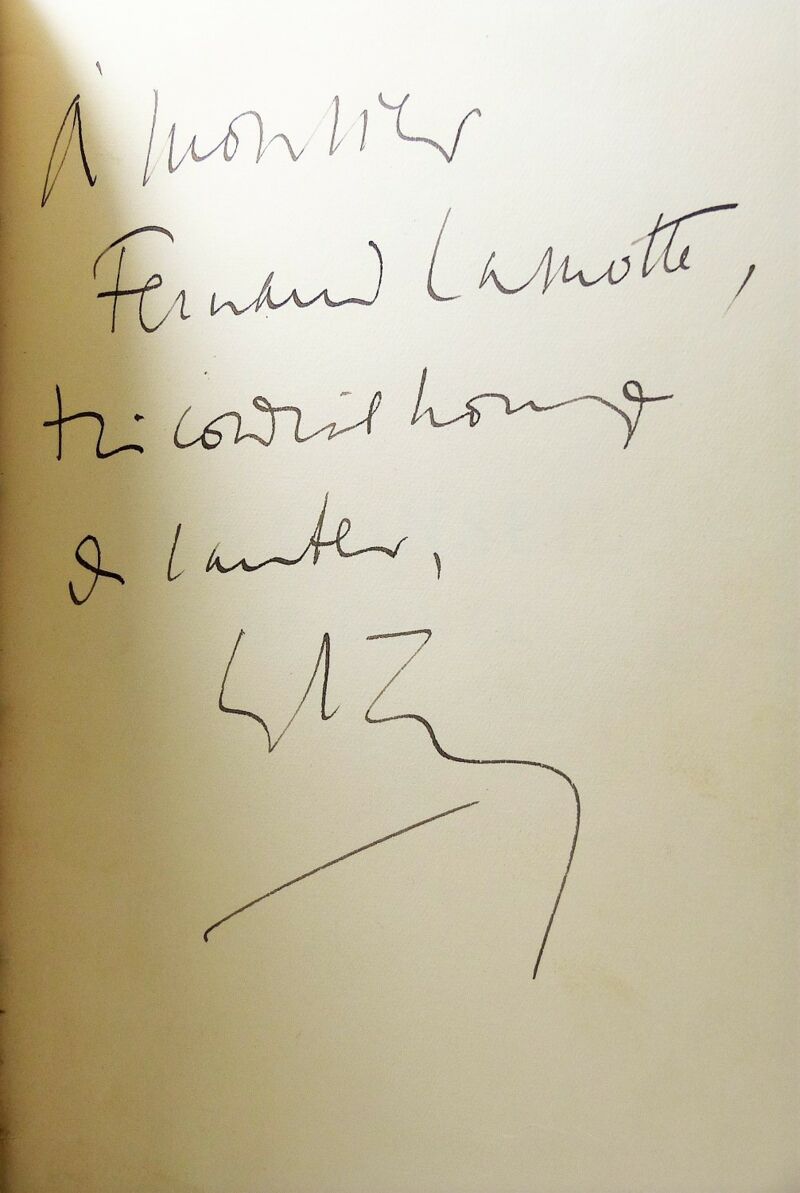 à monsieur
Fernand Lamotte,
très cordial hommage
de l'auteur,